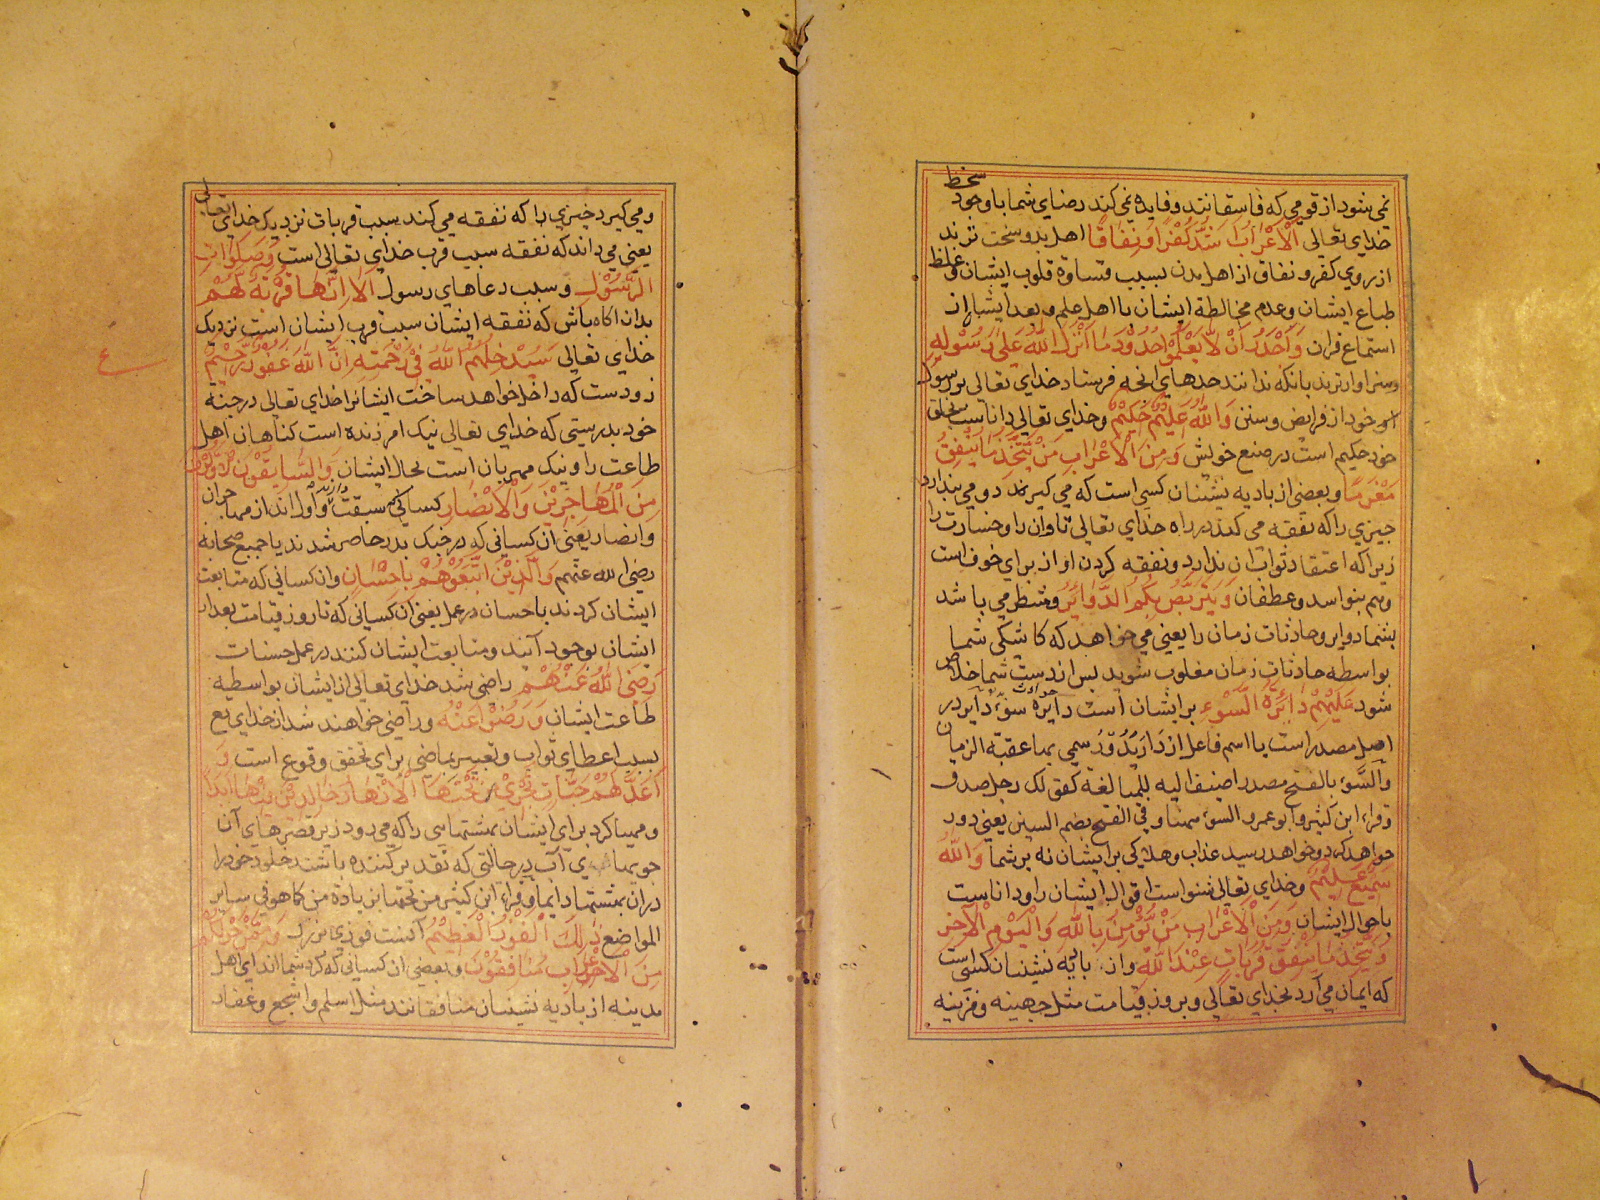 سخط
نمی شود از قومی که فاسقانند و فایده نمی کند رضای شما با وجود
خدای تعالی اَلْاَعْرَابُ اَشَدُّ كُفْرًا وَنِفَاقًا اهل بدو سخت ترند
از روی کفر و نفاق از اهل مدن بسبب قساوة قلوب ایشان و غلظ
طباع ایشان و عدم مخالطة ایشان با اهل علم و بعد ایشان از
استماع قران وَاَجْدَرُ اَنْ لَا يَعْلَمُوْا حُدُوْدَ مَا اَنْزَلَ اللهُ عَلٰى رَسُوْلِهِ
وسزاوارترند بانکه ندانند حدهای انچه فرستاد خدای تعالی بر رسول
خود از فرایض وسنن وَاللهُ عَلِيْمٌ حَكِيْمٌ وخدای تعالی داناست بخلق
خود حکیم است در صنع خویش وَمِنَ الْاَعْرَابِ مَنْ يَتَّخِذُ مَا يُنْفِقُ
مَغْرَمًا وبعضی از بادیه نشینان کسی است که می کیرند و می پندارد
چیزی را که نفقه می کند در راه خدای تعالی تاوان را و خسارت را
زیرا که اعتقاد ثواب ان ندارد و نفقه کردن او از برای خوف است
وهم بنو اسد وغطفان وَيَتَرَبَّصُ بِكُمُ الدَّوَائِرَ ومنتظر می باشد
بشما دوایر وحادثات زمان را یعنی می خواهد که کاشکی شما
بواسطه حادثات زمان مغلوب شوید پس از دست شما خلاص
شود عَلَيْهِمْ دَائِرَةُ السَّوْءِ بر ایشان است دایره سوء دایره در
اصل مصدر است یا اسم فاعل از دَارَ يَدُوْرُ سمی بها عقبة الزمان
والسَّوء بالفتح مصدر اضیف الیه للمبالغة کقولک رجل صدق
وقراء ابن کثیر و ابو عمرو السوء هنا و فی الفتح بضم السین یعنی دور
خواهد کرد و خواهد رسید عذاب وهلاکی بر ایشان نه بر شما وَاللهُ
سَمِيْعٌ عَلِيْمٌ وخدای تعالی شنواست اقوال ایشان را و داناست
باحوال ایشان وَمِنَ الْاَعْرَابِ مَنْ يُؤْمِنُ بِاللهِ وَالْيَوْمِ الْاٰخِرِ
وَيَتَّخِذُ مَا يُنْفِقُ قُرُبَاتٍ عِنْدَ اللهِ واز بادیه نشینان کسی است
که ایمان می آرد بخدای تعالی و بروز قیامت مثل جهینه و مزینه
ومی کیرد چیزی را که نفقه می کند سبب قربات نزدیک خدای تعالی
یعنی می داند که نفقه سبب قرب خدای تعالی است وَصَلَوَاتِ
الرَّسُوْلِ وسبب دعاهای رسول اَلَا اِنَّهَا قُرْبَةٌ لَهُمْ
بدان اکاه باش که نفقه ایشان سبب قرب ایشان است نزدیک
خدای تعالی سَيُدْخِلُهُمُ اللهُ فِيْ رَحْمَتِهِ اِنَّ اللهَ غَفُوْرٌ رَحِيْمٌ
زودست که داخل خواهد ساخت ایشانرا خدای تعالی در جنة
خود بدرستی که خدای تعالی نیک امرزنده است کناهان اهل
طاعت را و نیک مهربان است بحال ایشان وَالسَّابِقُوْنَ الْاَوَّلُوْنَ
مِنَ الْمُهَاجِرِيْنَ وَالْاَنْصَارِ کسانی که سبقت دارند و اول اند از مهاجران
وانصار یعنی ان کسانی که در جنک بدر حاضر شدند یا جمیع صحابه
رضی الله عنهم وَالَّذِيْنَ اتَّبَعُوْهُمْ بِاِحْسَانٍ وان کسانی که متابعت
ایشان کردند باحسان در عمل یعنی ان کسانی که تا روز قیامت بعد از
ایشان بوجود آیند ومتابعت ایشان کنند در عمل حسنات
رَضِيَ اللهُ عَنْهُمْ راضی شد خدای تعالی از ایشان بواسطه
طاعت ایشان وَرَضُوْا عَنْهُ وراضی خواهند شد از خدای تع
بسبب اعطای ثواب وتعبیر بماضی برای تحقق وقوع است وَ
اَعَدَّ لَهُمْ جَنَّاتٍ تَجْرِيْ تَحْتَهَا الْاَنْهَارُ خَالِدِيْنَ فِيْهَا اَبَدًا
ومهیا کرد برای ایشان بهشتهایی را که می رود زیر قصرهای آن
جویهای آب در حالتی که تقدیر کننده باشند خلود خود را
دران بهشتها دایما وقراء ابن کثیر من تحتها بزیادة من کما هو فی سایر
المواضع ذٰلِكَ الْفَوْزُ الْعَظِيْمُ آنست فوزی بزرک وَمِمَّنْ حَوْلَكُمْ
مِنَ الْاَعْرَابِ مُنَافِقُوْنَ وبعضی ان کسانی که کرد شما اند ای اهل
مدینه از بادیه نشینان منافقانند مثل اسلم و اشجع و غفار
ع